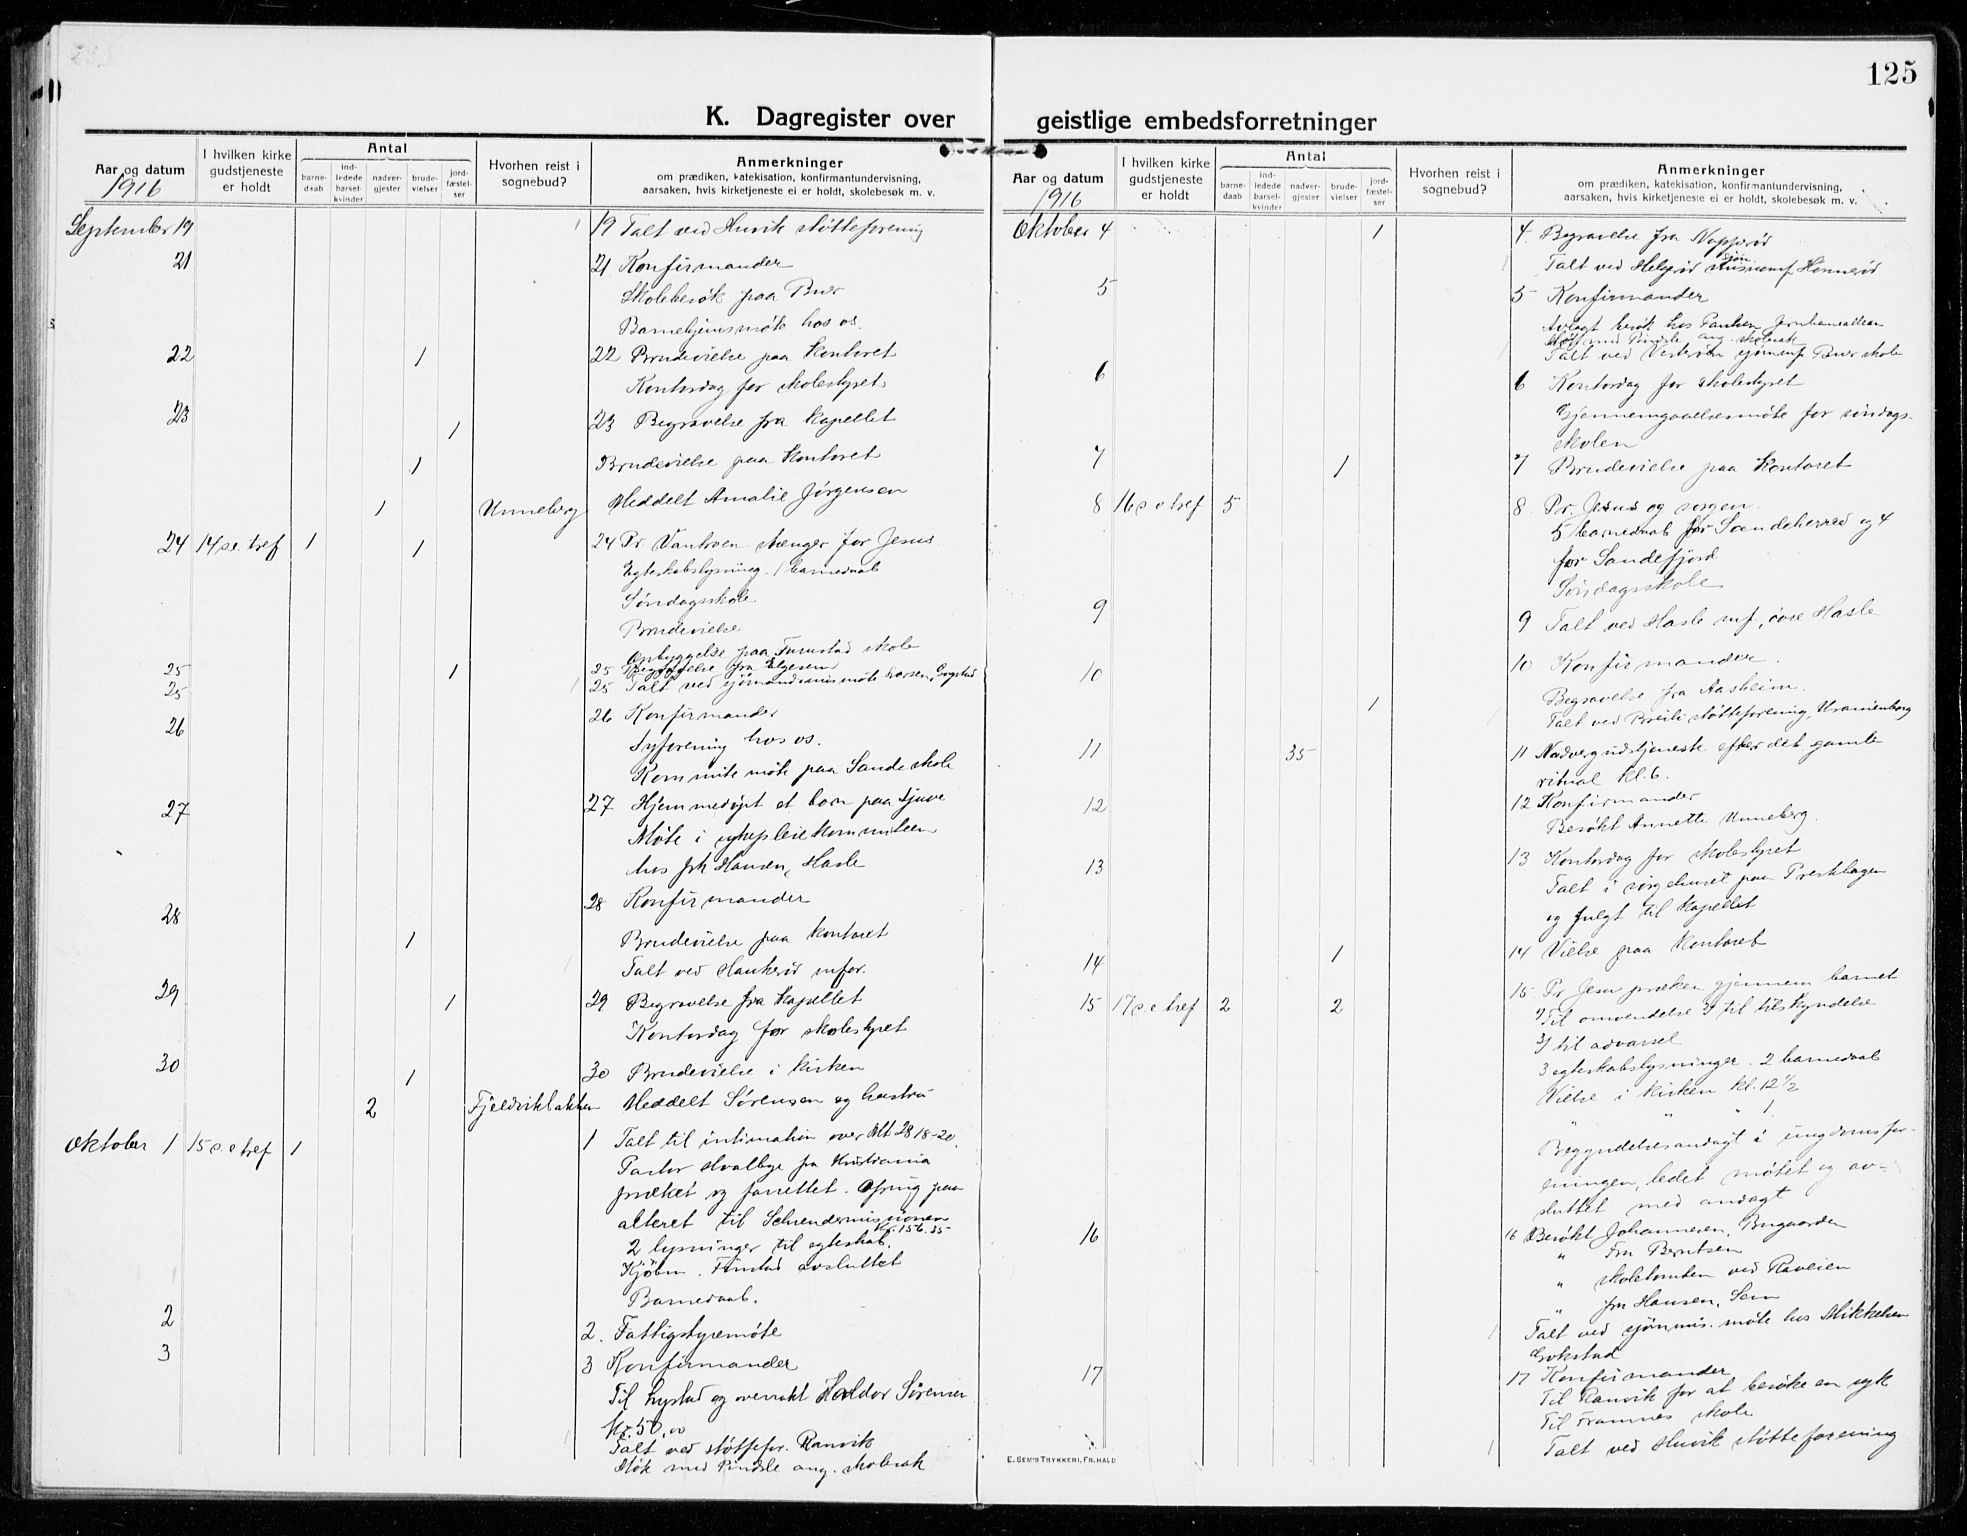 125
K. Dagregister over geistlige embedsforretninger
Aar og datum
1916
I hvilken kirke gudstjeneste er holdt
Antal
barne-daab
ind-ledede barsel-kvinder
nadver-gjester
brude-vielser
jord-fæstel-ser
Hvorhen reist i sognebud?
Anmerkninger
om prædiken, katekisation, konfirmantundervisning,
aarsaken, hvis kirketjeneste ei er holdt, skolebesøk m. v.
September 19 19 Talt ved Huvik støtteforening
21 21 Konfirmander
Skolebesøk paa Bur
Barnehjemsmøte hos os.
22 1 22 Brudevielse paa kontoret
Kontordag for skolestyret
23 1 23 Begravelse fra kapellet
1 Brudevielse paa kontoret
1 Unneberg Meddelt Amalie Jørgensen
24 14 s e. tref 1 1 24 Pr Vantroen stænger for Jesus
Egteskabslysning. 1 barnedaab
Søndagsskole
Brudevielse
Opbyggelse paa Furustad skole
25 1 25 Begravelse fra Elgesem
25 25 Talt ved sjømandsmis møte Larsen, Gogstad
26 26 Konfirmander
Syforening hos os.
Kommite møte paa Sande skole
27 27 Hjemmedøpt et barn paa
Møte i sykepleiekommiteen
hos frk Hansen, Hasle
28 28 Konfirmander
1 Brudevielse paa kontoret
Talt ved Haukerød mfor.
29 1 29 Begravelse fra Kapellet
Kontordag for skolestyret
30 1 30 Brudevielse i kirken
2 Fjeldvikbakken Meddelt Sørensen og hustru
Oktober 1 15 s. e tref 1 1 Talt til intimation over Mt 28 18-20.
Pastor Hvalbye fra Kristiania
præket og forrettet. Ofring paa
alteret til
Kr. 156.35
2 lysninger til egteskab.
Kjøbm. Finstad avsluttet
Barnedaab.
2 2. Fattigstyremøte
3 3 Konfirmander
Til Nystad og overrakt Haldor Sørensen
Kr. 50.00
Talt ved støttefor. Ranvik
Møte med Pindsle ang. skolesak
Aar og datum
1916
I hvilken kirke gudstjeneste er holdt
Antal
barne-daab
ind-ledede barsel-kvinder
nadver-gjester
brude-vielser
jord-fæstel-ser
Hvorhen reist i sognebud?
Anmerkninger
om prædiken, katekisation, konfirmantundervisning,
aarsaken, hvis kirketjeneste ei er holdt, skolebesøk m. v.
Oktober 4 1 4. Begravelse fra Napperød
Talt ved Helgerød
5 5 Konfirmander
Avlagt besøk hos Paulsen Jernbanealleen
Møte med Pindsle ang. skolesak
Talt ved Vesterøen sjømmf Bur skole
6 6 Kontordag for skolestyret
Gjennemgaaelsesmøte for søndags-
skolen
7 1 7 Brudevielse paa Kontoret
8 16 s e tref 5 8 Pr. Jesus og sorgen.
5 barnedaab for Sandeherred og 4
for Sandefjord
Søndagsskole
9 9 Talt ved Hasle mf, øvre Hasle
10 10 Konfirmander.
1 Begravelse fra Aasheim.
Talt ved Breili støtteforening, Uranienborg
11 35 11 Nadvergudstjeneste efter det gamle
ritual kl. 6.
12 12 Konfirmander
Besøkt Annette Unneberg.
13 13 Kontordag for skolestyret
Talt i sørgehuset paa Presthagen
og fulgt til Kapellet
14 1 14 Vielse paa Kontoret
15 17 s. e tref 2 2 15. Pr Jesu præken gjennem barnet
1) Til omvendelse 2) til tilskyndelse
3) til advarsel
3 egteskabslysninger. 2 barnedaab
Vielse i kirken kl. 12 1/2
" " " 1.
Begyndelsesandagt i ungdomsfor-
eningen, ledet møtet og av-
sluttet med andagt
16 16 Besøkt Johannesen, Bugaarden
" Fru Berntsen
" skoletomten ved Raveien
" fru Hansen, Sem
Talt ved sjømmis. møte hos Mikkelsen
Gokstad
17 17 Konfirmander
Til Ranvik for at besøke en syk
Til Framnes skole
Talt ved Huvik støtteforening
E. SEM'S TRYKKERI, FR.HALD